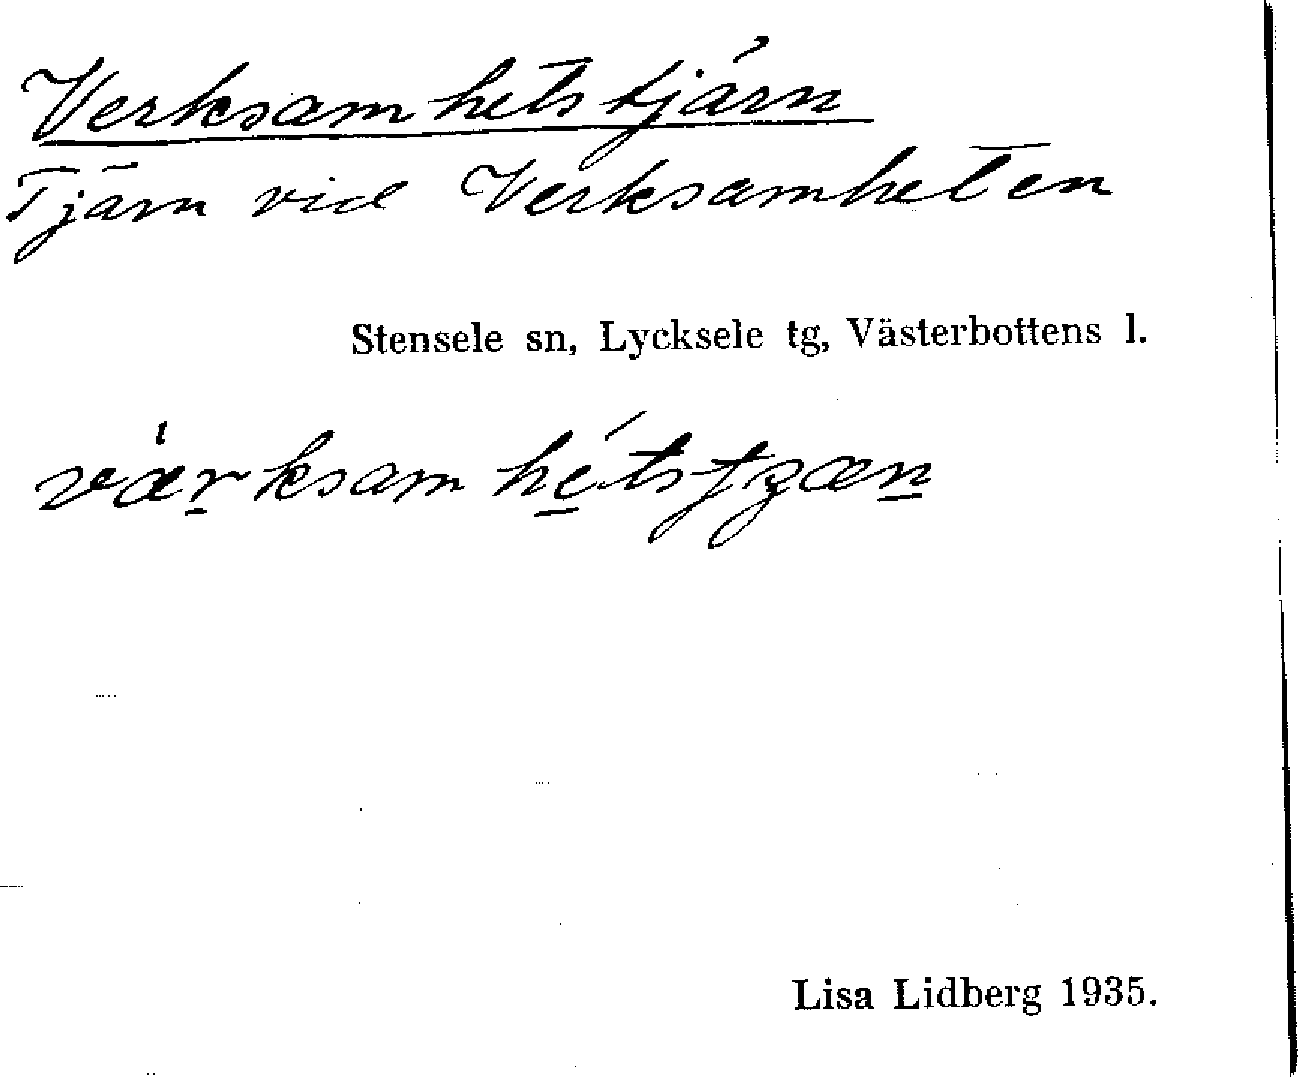 Verksamhetstjärn
Tjärn vid Verksamheten
Stensele sn, Lycksele tg, Västerbottens l.
Lisa Lidberg 1935.